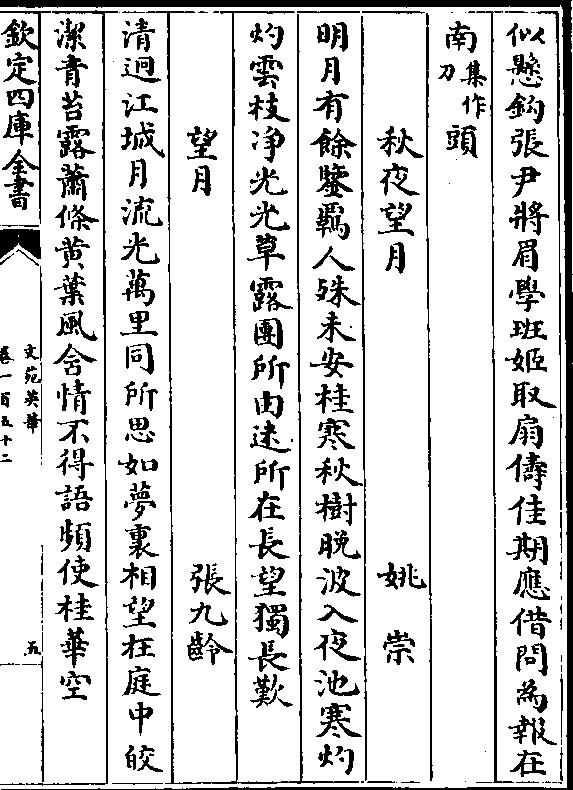 似懸鈎張尹將眉學班姬取扇儔佳期應借問為報在
南刀集作頭
秋夜望月 姚崇
明月有餘鑒羈人殊未安桂寒秋樹晚波入夜池寒灼
灼雲枝净光光草露團所由迷所在長望獨長歎
望月 張九齡
清迥江城月流光萬里同所思如夢裏相望在庭中皎
潔青苔露蕭條黄葉風含情不得語頻使桂華空
欽定四庫全書
文苑英華
卷一百五十二
五